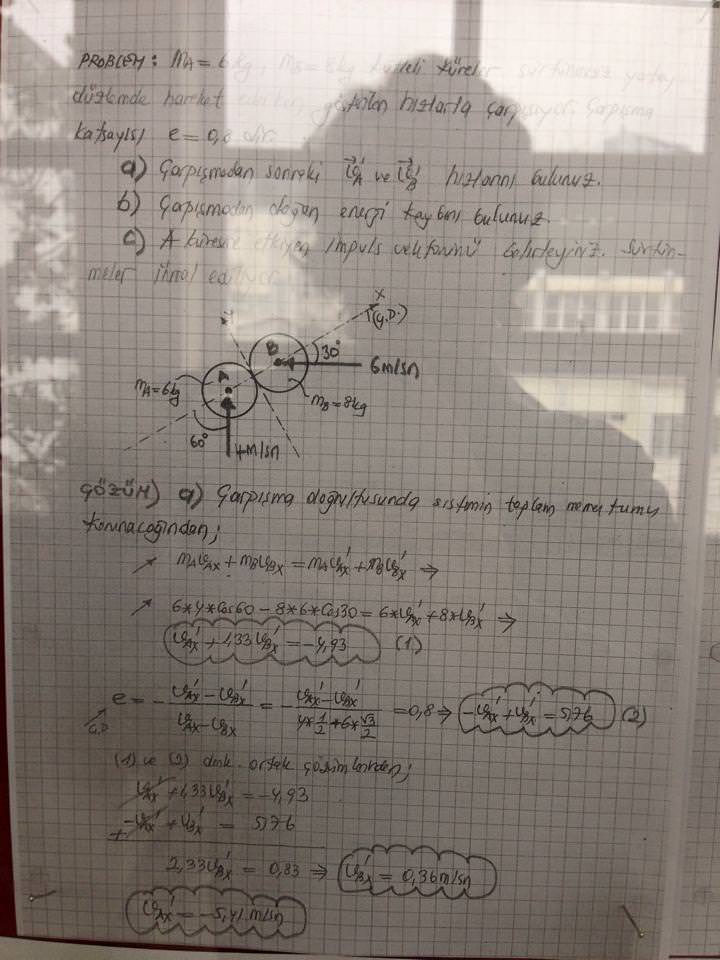 PROBLEM: mA = 6 kg, mB = 8kg kütleli küreler sürtünmesiz yatay
düzlemde hareket ederken gösterilen hızlarla çarpışıyor. Çarpışma
katsayısı e = 0,8 dir.
a) Çarpışmadan sonraki v⃗A' ve v⃗B' hızlarını bulunuz.
b) Çarpışmadan doğan energi kaybını bulunuz.
c) A küresine etkiyen impuls vektörünü belirleyiniz. Sürtün-
meler ihmal ediliyor.
x
(Ç.D.)
B
30°
6m/sn
A
mA=6kg
mB=8kg
60°
4m/sn
ÇÖZÜM) a) Çarpışma doğrultusunda sistemin toplam momentumu
korunacağından;
↗ mAvAx + mBvBx = mAvAx' + mBvBx' ⇒
↗ 6*4*Cos60 - 8*6*Cos30 = 6*vAx' + 8*vBx' ⇒
vAx' + 1,33vBx' = -4,93 (1)
e = - (vAx' - vBx')/(vAx - vBx) = - (vAx' - vBx')/(4*1/2 + 6*√3/2) = 0,8 ⇒ -vAx' + vBx' = 5,76 (2)
Ç.D
(1) ve (2) denk. ortak çözümlerinden;
vAx' + 1,33vBx' = -4,93
+ -vAx' + vBx' = 5,76
2,33vBx' = 0,83 ⇒ vBx' = 0,36m/sn
vAx' = -5,41 m/sn